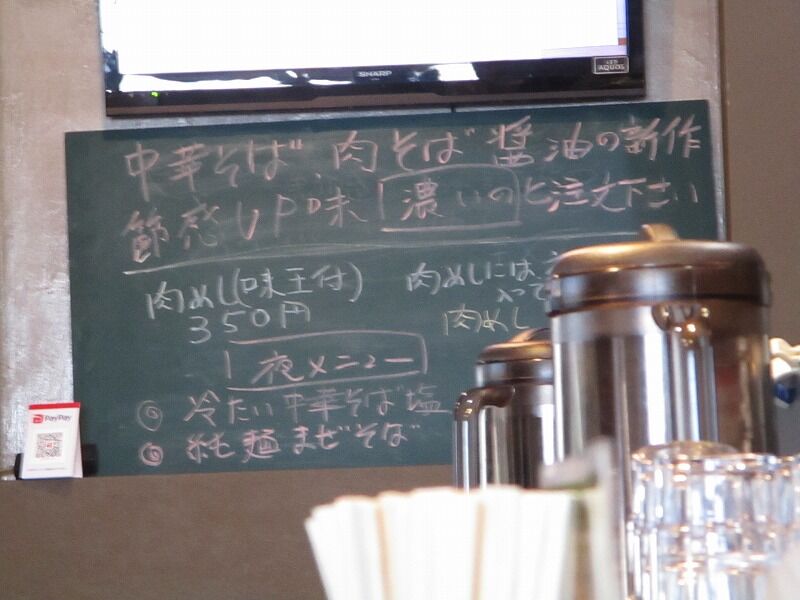 SHARP
AQUOS
中華そば、肉そば 醤油の新作
節感UP味 濃いの と注文下さい
肉めし(味玉付)
350円
肉めしには
入って
肉めし
夜メニュー
◎ 冷たい中華そば 塩
◎ 純麺まぜそば
PayPay